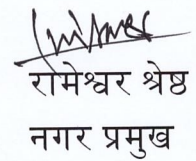 रामेश्वर श्रेष्ठ
नगर प्रमुख